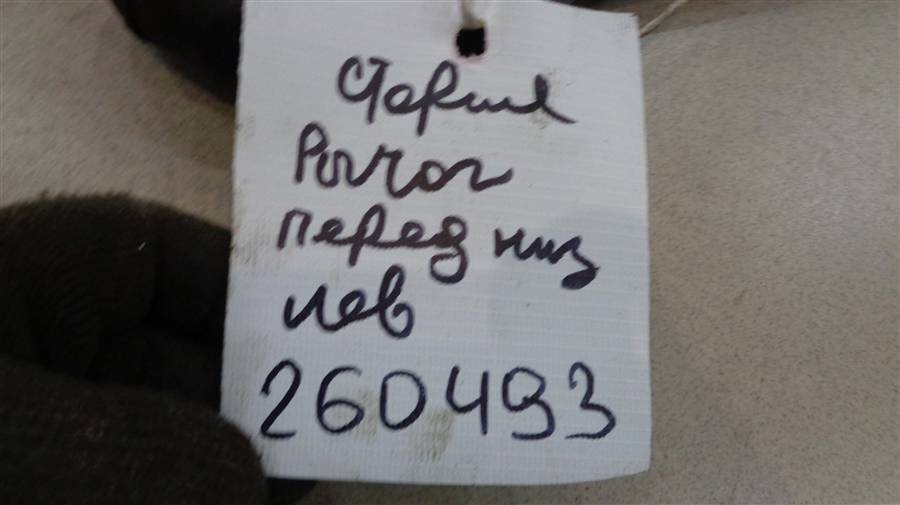 Старил
Рычаг
перед низ
лев
260493